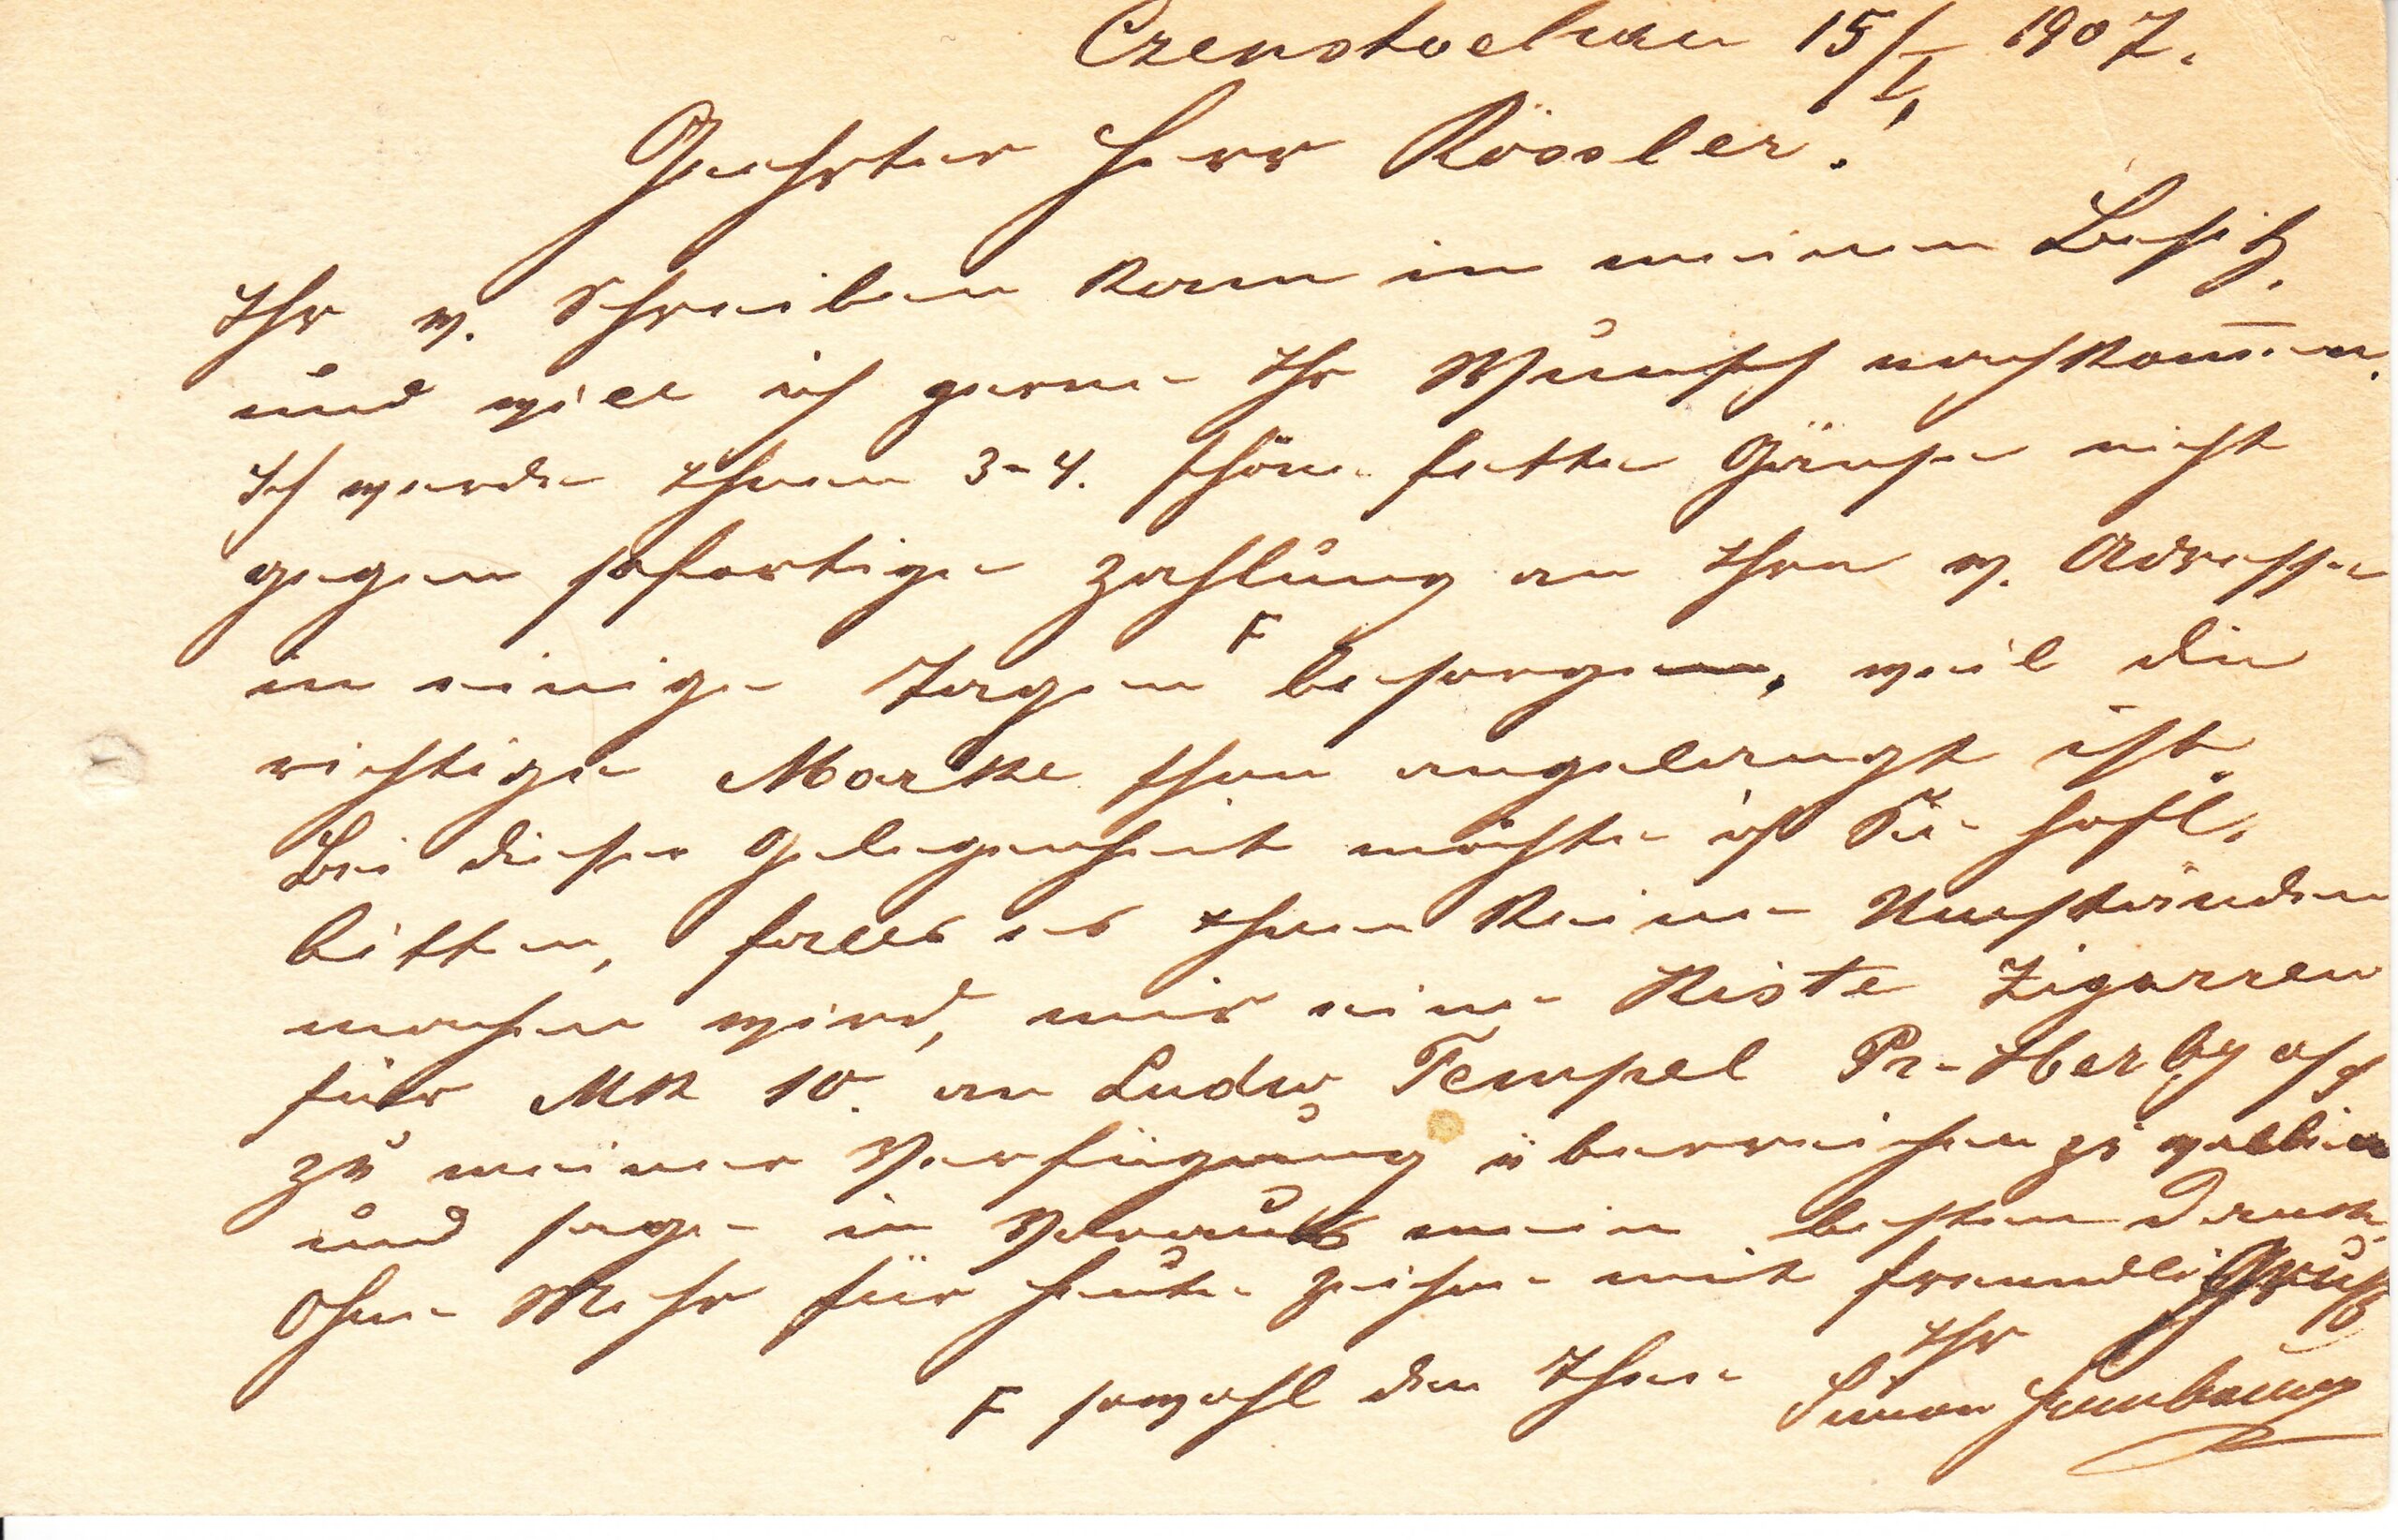 Czenstochau 15/I. 1907.
Geehrter Herr Rössler!
Ihr w. Schreiben kam in meinen Besitz.
und will ich gerne Ihr Wunsch nachkom̄en.
Ich werde Ihnen 3-4. schöne fette Gänse nicht
gegen sofortige Zahlung an Ihre w. Adresse
in einige Tagen F besorgen, weil die
richtige Marke schon angelangt ist.
Bei dieser Gelegenheit möchte ich Sie höfl.
bitten, falls es Ihnen keine Umständen
machen wird, mir eine Kiste Zigarren
für MK 10. an Ludw. Tempel Pr-Herby
zu meiner Verfügung überreichen zu wollen
und sage in Voraus mein besten Dank.
Ohne Mehr für heute zeichne mit freundli Gruß
Ihr
F sowohl den Ihnen Simon